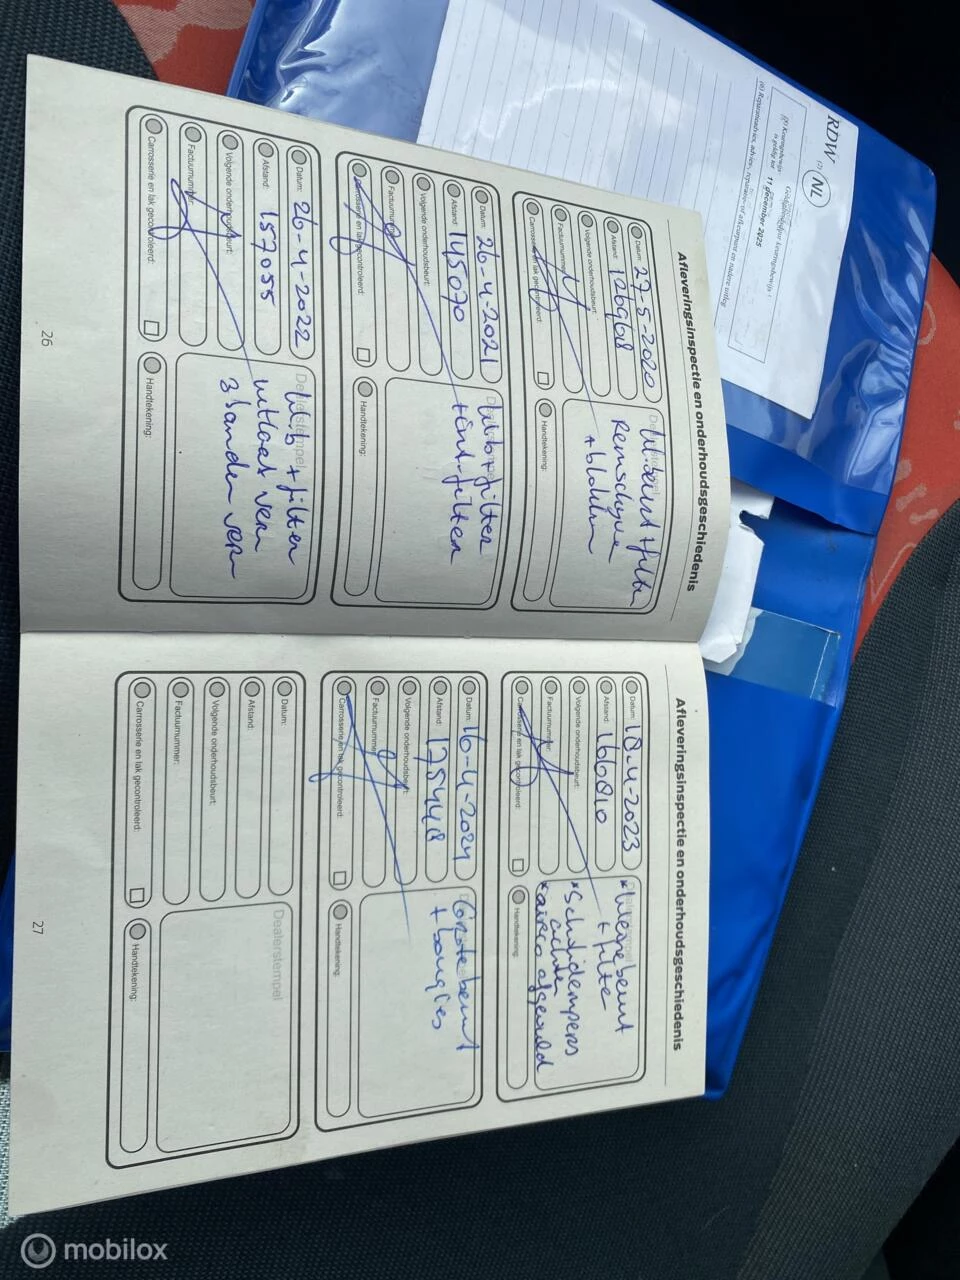 Afleveringsinspectie en onderhoudsgeschiedenis
Datum: 27-5-2020
Afstand: 126968
Volgende onderhoudsbeurt:
Factuurnummer:
Carrosserie en lak gecontroleerd:
Handtekening:
+ filter
Remschijven
+ blokken
Datum: 26-4-2021
Afstand: 145070
Volgende onderhoudsbeurt:
Factuurnummer:
Carrosserie en lak gecontroleerd:
Handtekening:
+ filter
+ int-filter
Datum: 26-4-2022
Afstand: 157055
Volgende onderhoudsbeurt:
Factuurnummer:
Carrosserie en lak gecontroleerd:
Handtekening:
Dealerstempel
+ filter
uitlaat vern
3 banden vern
26
Afleveringsinspectie en onderhoudsgeschiedenis
Datum: 18-4-2023
Afstand: 166810
Volgende onderhoudsbeurt:
Factuurnummer:
Carrosserie en lak gecontroleerd:
Handtekening:
+ filter
* Schokdempers
achter
* airco afgevuld
Datum: 16-4-2024
Afstand: 175448
Volgende onderhoudsbeurt:
Factuurnummer:
Carrosserie en lak gecontroleerd:
Handtekening:
Grote beurt
+ bougies
Datum:
Afstand:
Volgende onderhoudsbeurt:
Factuurnummer:
Carrosserie en lak gecontroleerd:
Handtekening:
Dealerstempel
27
RDW (2) NL
11 december 2025
mobilox